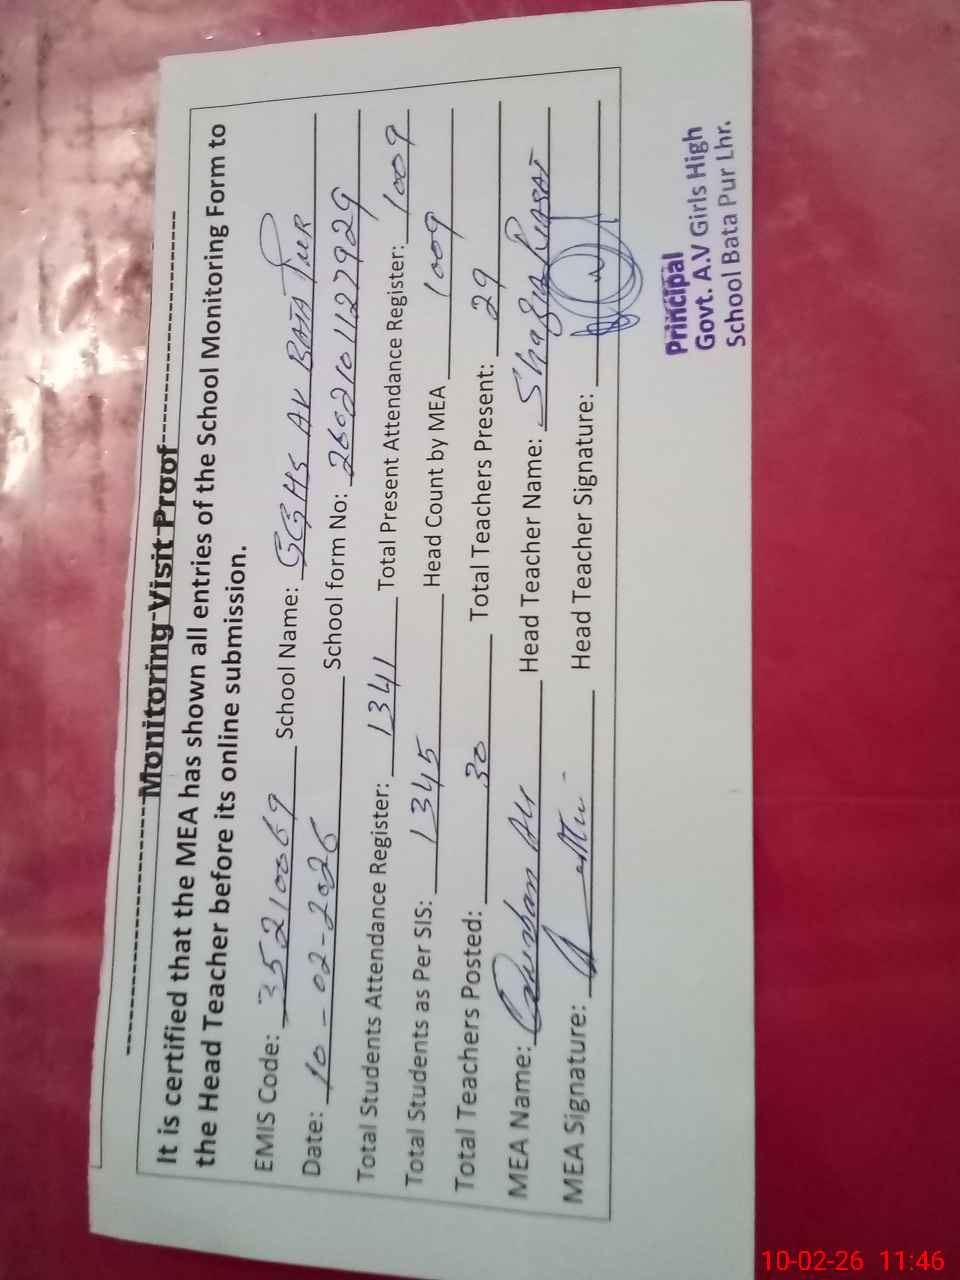 Monitoring Visit Proof
It is certified that the MEA has shown all entries of the School Monitoring Form to
the Head Teacher before its online submission.
EMIS Code: 35210069 School Name: GGHS AV BATA PUR
Date: 10-02-2026 School form No: 2602101127929
Total Students Attendance Register: 1341 Total Present Attendance Register: 1009
Total Students as Per SIS: 1345 Head Count by MEA 1009
Total Teachers Posted: 30 Total Teachers Present: 29
MEA Name: Ali Head Teacher Name: Shazia Riasat
MEA Signature: Head Teacher Signature:
Principal
Govt. A.V Girls High
School Bata Pur Lhr.
10-02-26 11:46